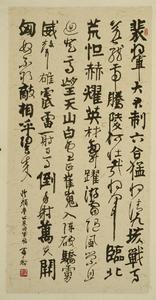 裴將軍大君制六合猛將清九垓戰馬
若龍虎騰陵何壯哉將軍臨北
荒烜赫耀英材劍舞躍游電隨風縈且
迴登高望天山白雲正崔巍入陣破驕虜
威聲雄震雷一射百馬倒再射萬夫開
匈奴不敢敵相呼歸去來